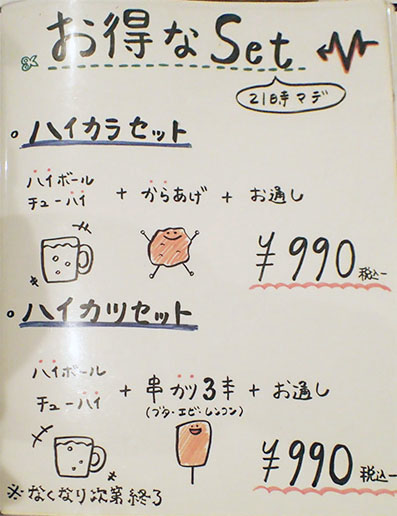 お得なSet
21時マデ
ハイカラセット
ハイボール
チューハイ + からあげ + お通し
¥990 税込
ハイカツセット
ハイボール
チューハイ + 串カツ3本 + お通し
(ブタ・エビ・レンコン)
¥990 税込
※なくなり次第終了